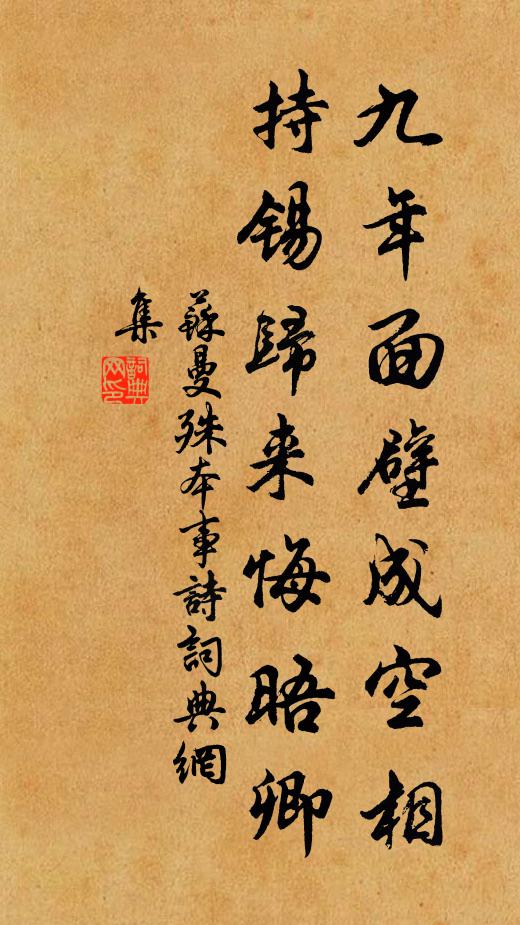 九年面壁成空相
持锡歸来悔晤卿
蘇曼殊本事詩詞典網
集
詞典
网印